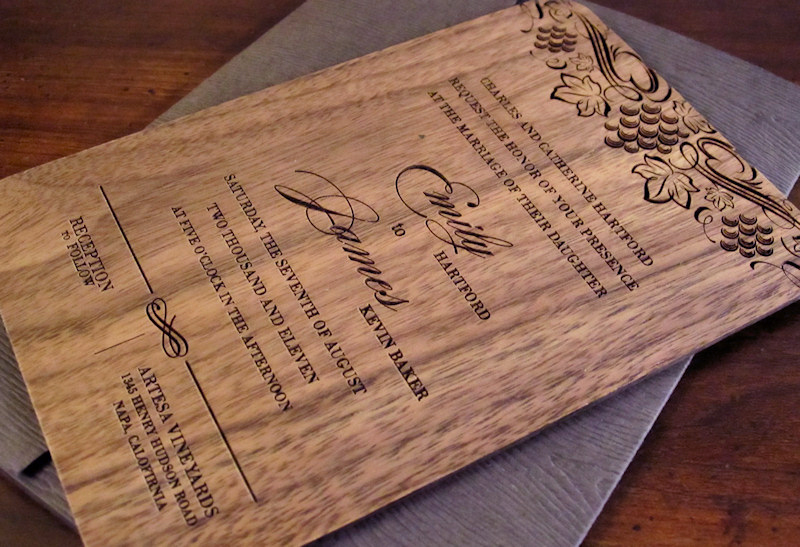 CHARLES AND CATHERINE HARTFORD
REQUEST THE HONOR OF YOUR PRESENCE
AT THE MARRIAGE OF THEIR DAUGHTER
Emily
HARTFORD
to
James
KEVIN BAKER
SATURDAY, THE SEVENTH OF AUGUST
TWO THOUSAND AND ELEVEN
AT FIVE O'CLOCK IN THE AFTERNOON
RECEPTION
TO FOLLOW
ARTESA VINEYARDS
1345 HENRY HUDSON ROAD
NAPA, CALOFTRNIA